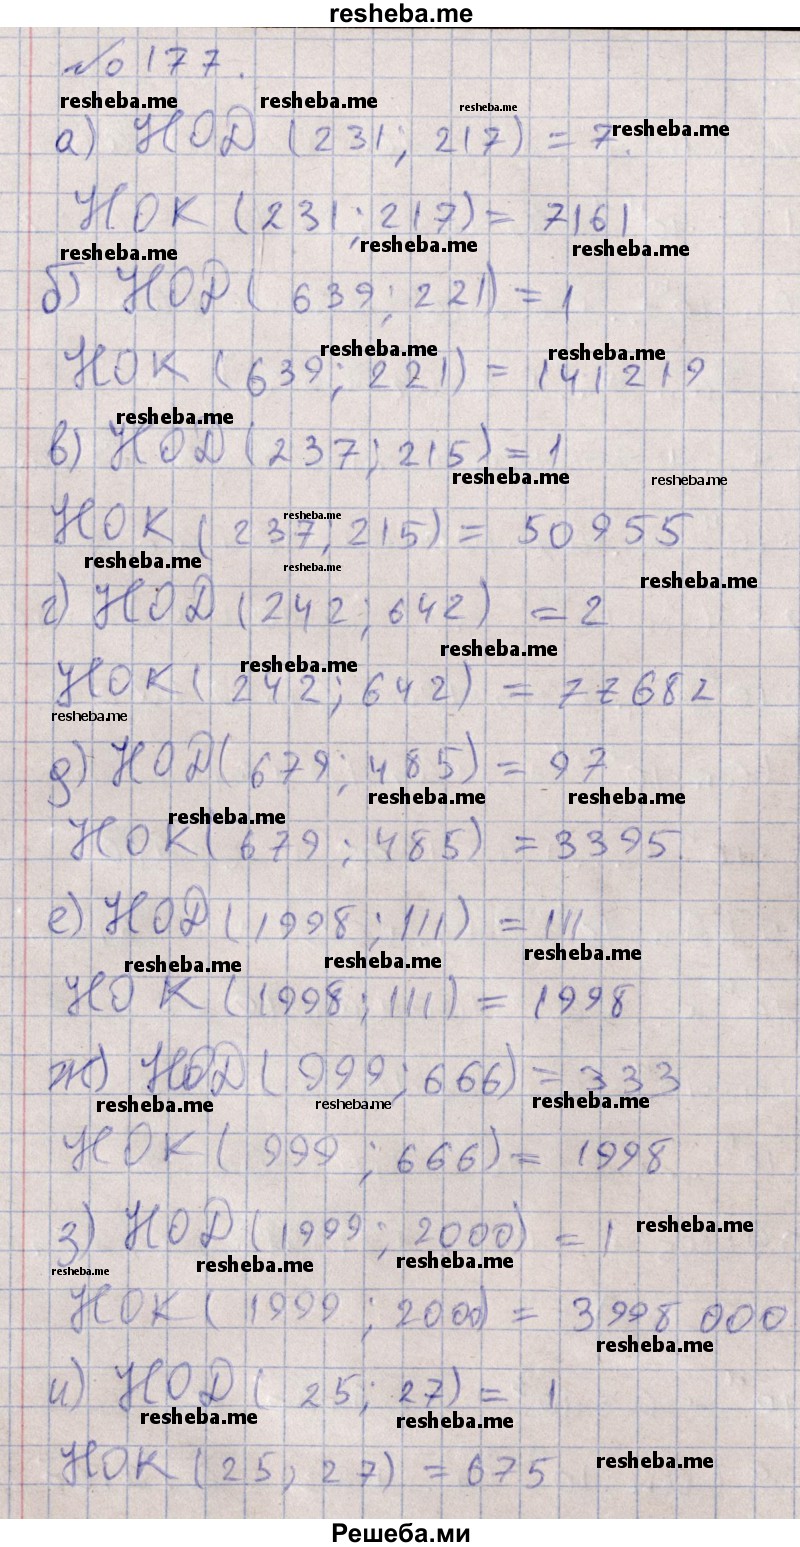 resheba.me
№ 177.
resheba.me resheba.me resheba.me
а) НОД (231; 217) = 7. resheba.me
НОК (231; 217) = 7161
resheba.me resheba.me resheba.me
б) НОД (639; 221) = 1
resheba.me resheba.me
НОК (639; 221) = 141219
resheba.me
в) НОД (237; 215) = 1
resheba.me resheba.me
resheba.me
НОК (237; 215) = 50955
resheba.me resheba.me resheba.me
г) НОД (242; 642) = 2
resheba.me resheba.me
НОК (242; 642) = 77682
resheba.me
д) НОД (679; 485) = 97
resheba.me resheba.me resheba.me
НОК (679; 485) = 3395.
е) НОД (1998; 111) = 111
resheba.me resheba.me resheba.me
НОК (1998; 111) = 1998
ж) НОД (999; 666) = 333
resheba.me resheba.me resheba.me
НОК (999; 666) = 1998
з) НОД (1999; 2000) = 1 resheba.me
resheba.me resheba.me resheba.me
НОК (1999; 2000) = 3998000
resheba.me
и) НОД (25; 27) = 1
resheba.me resheba.me
НОК (25; 27) = 675 resheba.me
Решеба.ми